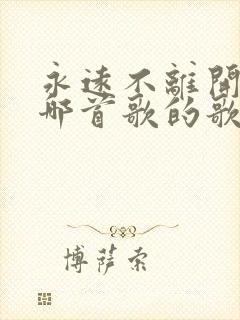 永遠不離開
那首歌的歌
博萨索